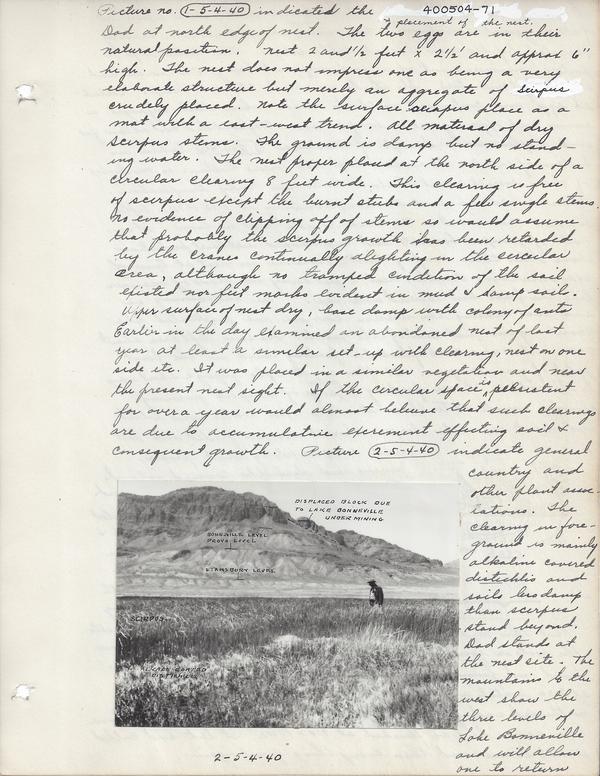 Picture no. 1-5-4-40 indicated the
400504-71
placement of the nest.
Dad at north edge of nest. The two eggs are in their
natural position. nest 2 and 1/2 feet x 2 1/2' and approx 6"
high. The nest does not impress one as being a very
elaborate structure but merely an aggregate of scirpus
crudely placed. Note the surface scirpus place as a
mat with a east-west trend. All material of dry
scirpus stems. The ground is damp but no stand-
ing water. The nest proper placed at the north side of a
circular clearing 8 feet wide. This clearing is free
of scirpus except the burnt stubs and a few single stems.
No evidence of clipping off of stems so would assume
that probably the scirpus growth has been retarded
by the cranes continually alighting in the circular
area, although no tramped condition of the soil
existed nor feet marks evident in mud & damp soil.
Upper surface of nest dry, base damp with colony of ants
Earlier in the day examined an abandoned nest of last
year at least a similar set-up with clearing, nest on one
side etc. It was placed in a similar vegetation and near
the present nest sight. If the circular space is persistent
for over a year would almost believe that such clearings
are due to accumulative excrement effecting soil &
consequent growth. Picture 2-5-4-40 indicate general
country and
other plant asso-
ciations. The
clearing in fore-
ground is mainly
alkaline covered
distichlis and
soils less damp
than scirpus
stand beyond.
Dad stands at
the nest site. The
mountains to the
west show the
three levels of
Lake Bonneville
and will allow
one to return
DISPLACED BLOCK DUE
TO LAKE BONNEVILLE
UNDERMINING
BONNEVILLE LEVEL
PROVO LEVEL
STANSBURY LEVEL
SCIRPUS
DISTICHLIS
2-5-4-40